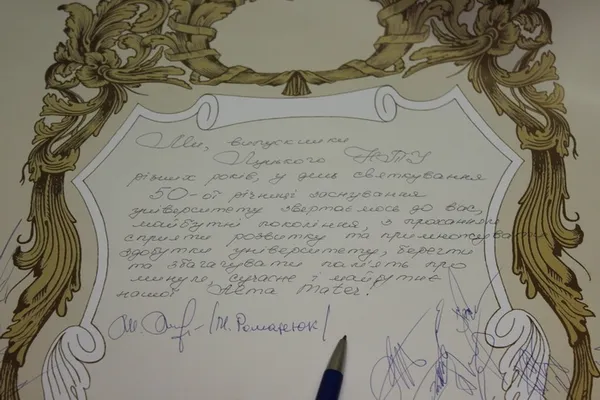 Ми, випускники
Луцького НТУ
різних років, у день святкування
50-ої річниці заснування
університету звертаємось до вас,
майбутні покоління, з проханням
сприяти розвитку та примножувати
здобутки університету, берегти
та збагачувати пам'ять про
минуле, сучасне і майбутнє
нашої Alma Mater.